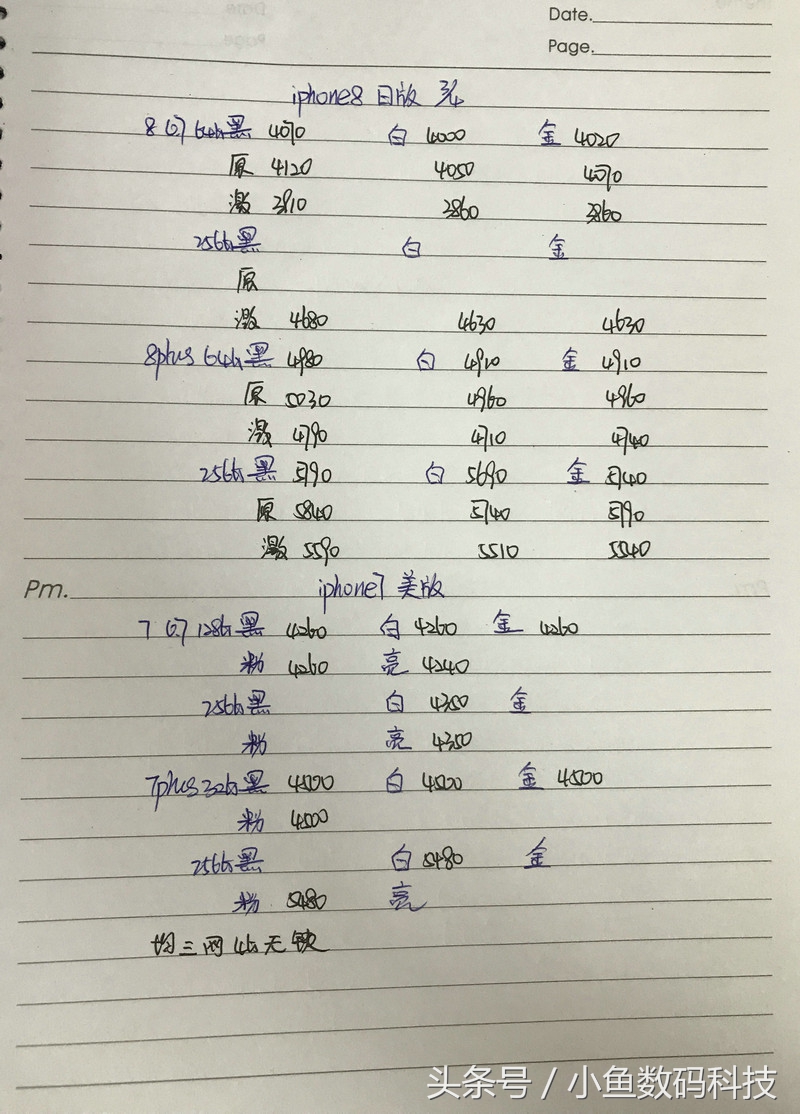 Date.
Page.
iphone8 日版
8 (4.7) 64G黑 4070 白 4000 金 4020
原 4120 4050 4070
激 3910 3860 3860
256G黑 白 金
原
激 4680 4630 4630
8plus 64G黑 4980 白 4910 金 4910
原 5030 4960 4960
激 4790 4710 4740
256G黑 5790 白 5690 金 5740
原 5840 5740 5790
激 5590 5510 5540
Pm. iphone7 美版
7 (4.7) 128G黑 4260 白 4260 金 4260
粉 4260 亮 4240
256G黑 白 4350 金
粉 亮 4350
7plus 32G黑 4500 白 4500 金 4500
粉 4500
256G黑 白 5480 金
粉 5480 亮
均三网4G无锁
头条号 / 小鱼数码科技